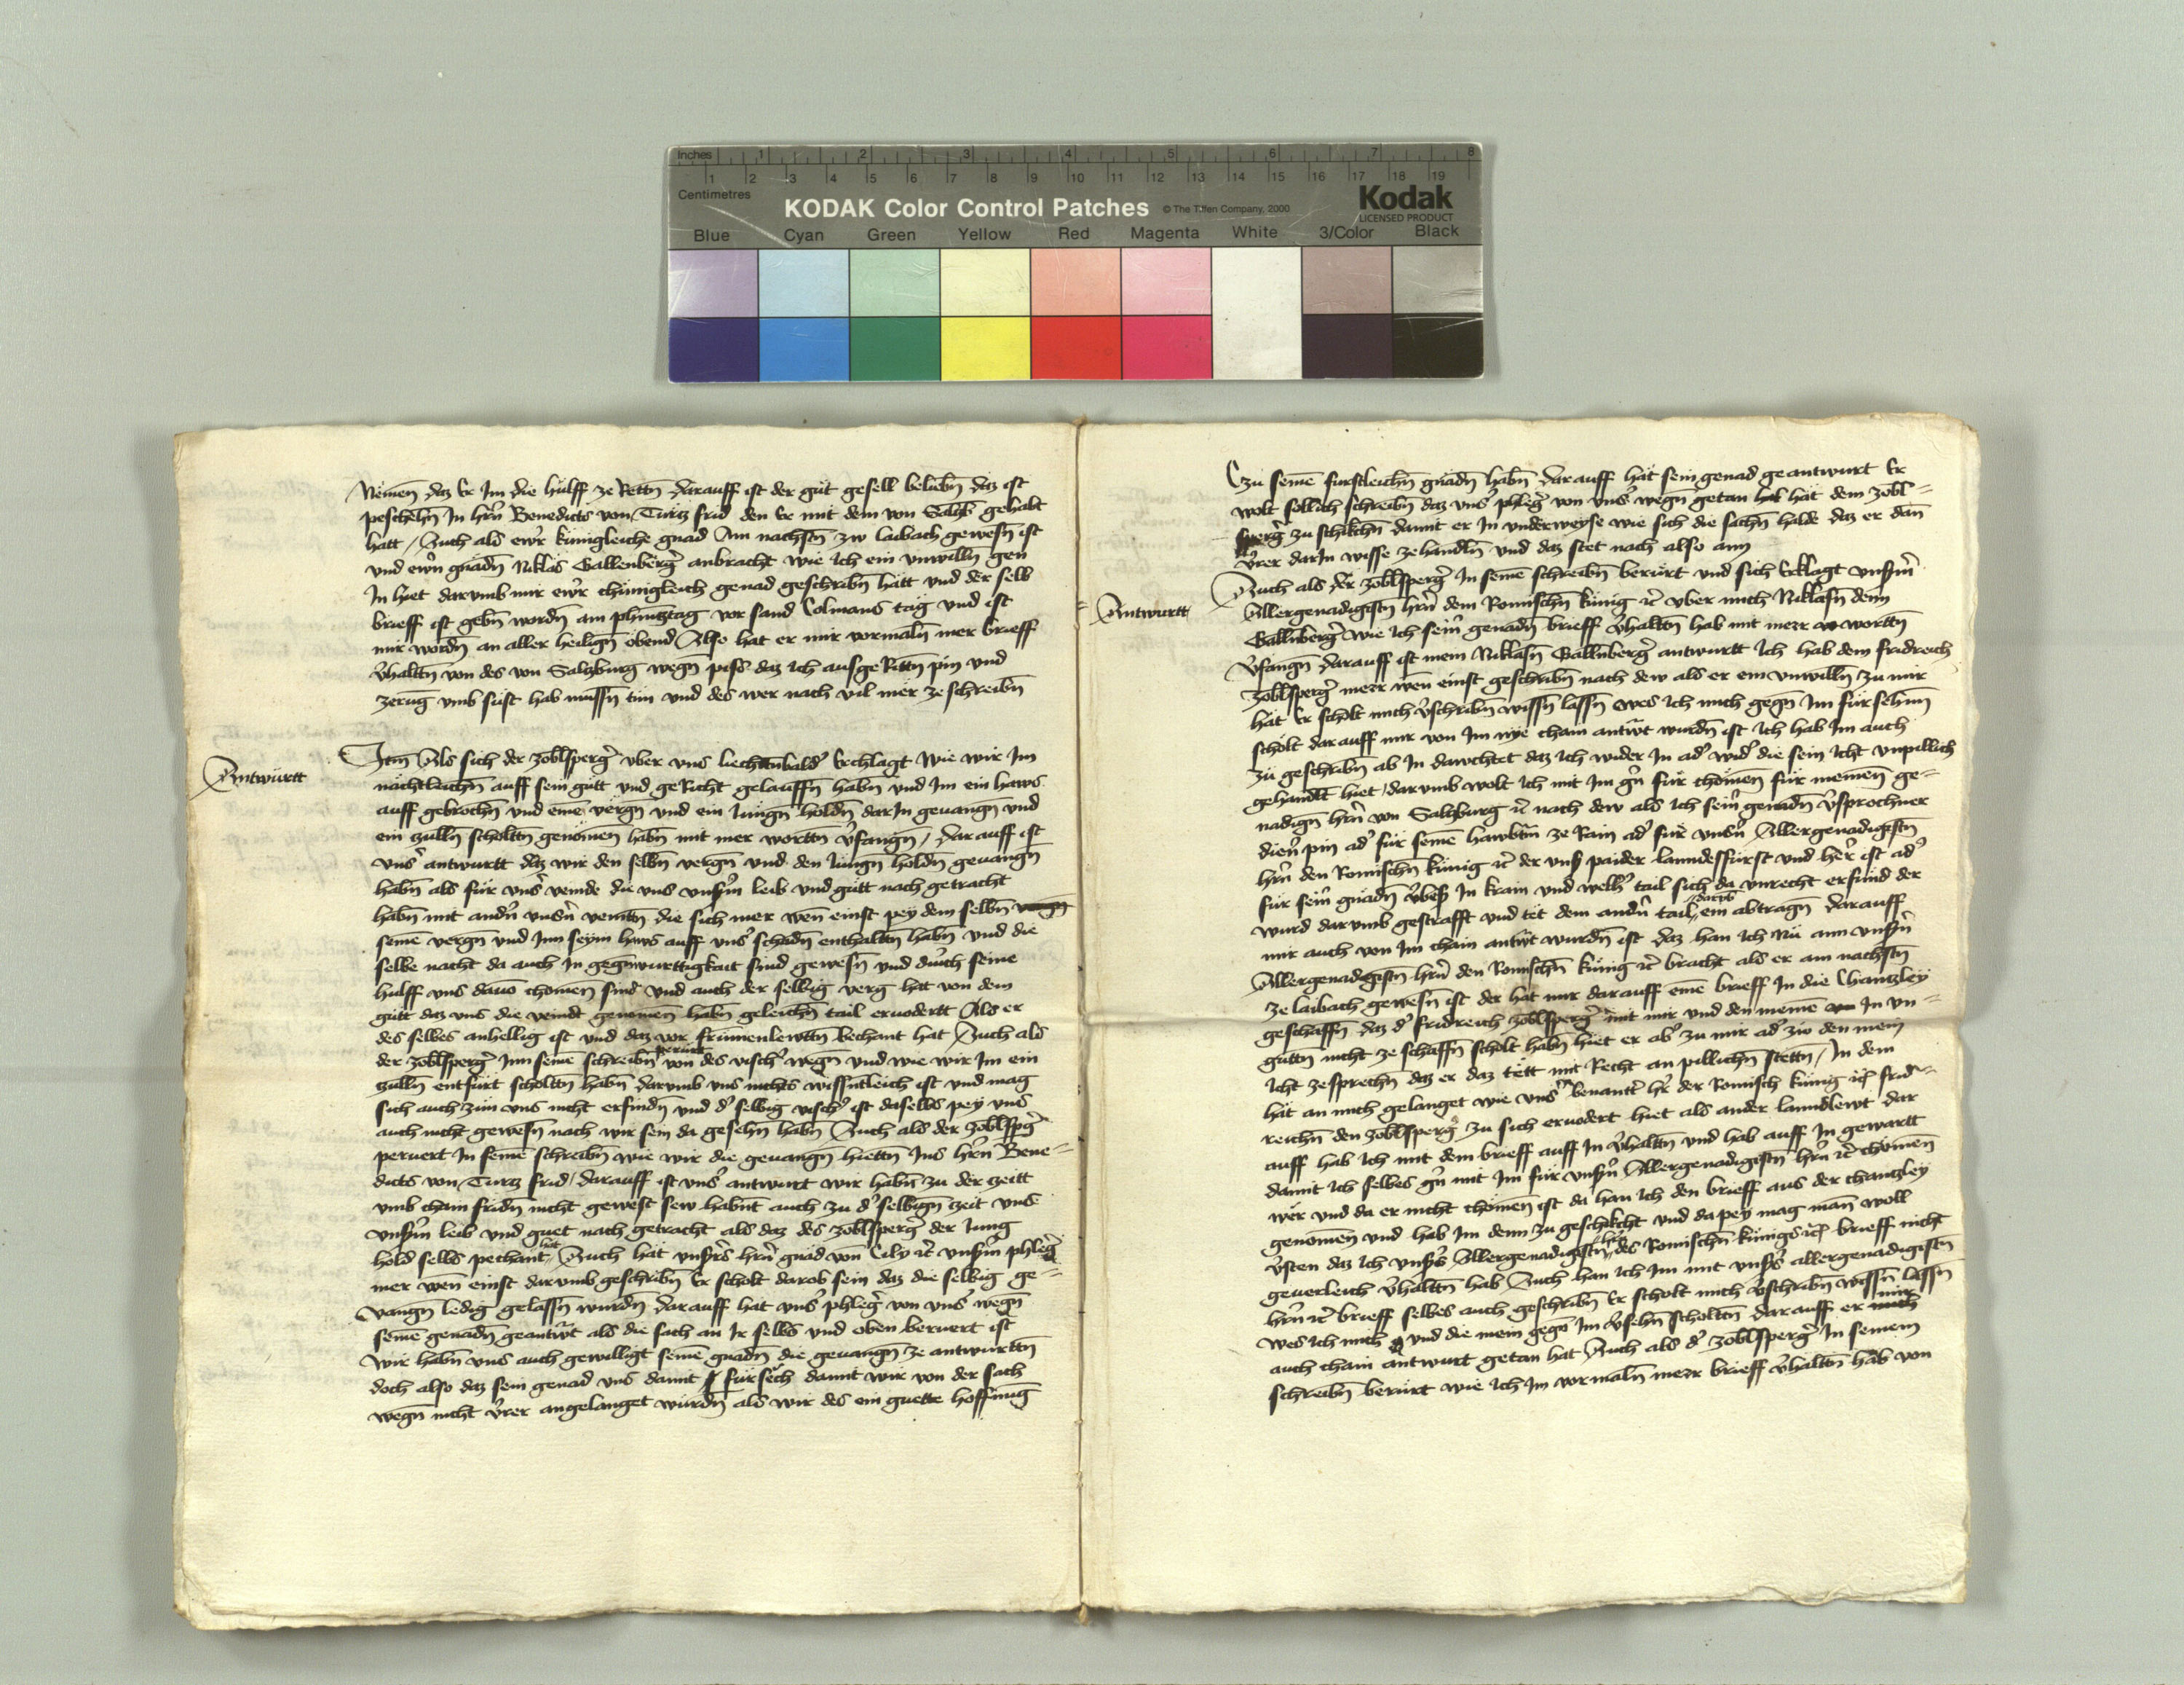 Inches 1 2 3 4 5 6 7 8
1 2 3 4 5 6 7 8 9 10 11 12 13 14 15 16 17 18 19
Centimetres
KODAK Color Control Patches © The Tiffen Company, 2000 Kodak
LICENSED PRODUCT
Blue Cyan Green Yellow Red Magenta White 3/Color Black
Nemen daz Er Im die hülff ze Rettn̄ darauff ist der güt gesell belieb̄n daz ist
peschehn̄ In hrn̄ Benedicts von Turtz frid den Er mit dem von Salzb gehabt
hatt / Auch als ewr̄ künigleiche gnad Am nachstn̄ zw laibach gewesn̄ ist
und ewrn̄ gnadn̄ Niklas Gallenberg̉ anbracht wie ich ein vnwilln̄ gen
In hiet darvmb mir ewr̉ chünigleich genad geschribn̄ hätt vnd der selb
brieff ist gebn̄ wordn̄ am phincztag vor sand Colmans tag vnd ist
mir wordn̄ an aller heilign̄ obend Also hat er mir vormaln̄ mer brieff
v̉haltn̄ von des von Salzburg wegn̄ piss daz ich ausgeRittn̄ pin vnd
zerūg vmb süst hab müssn̄ tün vnd des wer nach vil mer ze schreibn̄
Antwürtt
Itm̄ Als sich der zoblsperg̉ vber vns liechtnbald̉ Erchlagt wie wir Im
nächtleichn̄ auff sein gütt vnd geRicht gelauffn̄ habn̄ vnd Im ein haws
auff gebrochn̄ vnd eine̅ vergn̄ vnd ein Jungn̄ holdn̄ darIn geuangn̄ vnd
ein zulln̄ scholttn̄ genomen habn̄ mit mer worttn̄ v̉fangn̄ / dar auff ist
vns̉ antwurtt daz wir den selbn̄ vergn̄ vnd den Jungn̄ holdn̄ geuangn̄
habn̄ als für vns̉ veinde die vns vnsm̄ leib vnd gütt nach getracht
habn̄ mit andn̉ vnsn̉ veintn̄ die sich mer wen̄ einst pey dem selbn̄
seine̅ vergn̄ vnd Inn seym haws auff vns̉ schadn̄ enthaltn̄ habn̄ vnd die
selbe nacht da auch In gegn̄wurttigkait sind gewesn̄ vnd durch seine
hulff vns dauo̅ chomen sind vnd auch der selbig verg hat von dem
gütt daz vns die veindt genomen habn̄ geleichn̄ tail eruodertt Als er
des selbes anhellig ist vnd daz vor frümenlewttn̄ bechant hat Auch als
der zoblsperg̉ Inn seine̅ schreibn̄ perürt von des visch̉ wegn̄ vnd wie wir Im ein
zulln̄ entfürt scholttn̄ habn̄ darvmb vns nichts wissntleich ist vnd mag
sich auch zün vns nicht erfindn̄ vnd d̉ selbig visch̉ ist daselbs pey vns
auch nicht gewesn̄ nach wir sein da gesehn̄ habn̄ Auch als der zoblspg̉
peruert In seine̅ schreibn̄ wie wir die geuangn̄ hiettn̄ Ins hrn̄ Bene=
dicts von Turtz frid / darauff ist vns̉ antwurt wir habn̄ zu der zeitt
vmb chain fridn̄ nicht gewest sew habn̄t auch zu d̉ selbign̄ zeit vns
vnsm̄ leib vnd guet nach getracht als daz des zoblsperg̉ der Jung
hold selbs pechant hat Auch hät vnsr̄s hrn̄ gnad von Cily ꝛc vnsm̄ phleg̉
mer wen̄ einst darvmb geschribn̄ Er scholt darob sein daz die selbig ge=
vangn̄ ledig gelassn̄ wurdn̄ darauff hat vns̉ phleg̉ von vns̉ wegn̄
seine̅ genadn̄ geantw̉t als die sach an Ir selbs vnd oben beruert ist
Wir habn̄ vns auch gewilligt seine̅ gnadn̄ die geuangn̄ ze antwurttn̄
doch also daz sein genad vns damit fürsech damit wir von der sach
wegn̄ nicht v̉rer angelanget würdn̄ als wir des ein guette hoffnūg
Czu seine̅ furstleichn̄ gnadn̄ habn̄ darauff hät sein genad geantwurt Er
wolt sollich schreibn̄ daz vns̉ phleg̉ von vns̉ wegn̄ getan hat hät dem zobl=
sperg̉ zu schikchn̄ damit er In vnderweyse wie sich die sachn̄ halde daz er dan̄
v̉rer darIn wisse zehandln̄ vnd daz stet nach also ann
Antwurtt
Auch als der zoblsperg̉ In seine̅ schreibn̄ berürt vnd sich Erklagt vnsm̄
Allergenadigistn̄ hrn̄ dem Romischn̄ künig ꝛc vber mich Niklasn̄ dem
Gallnberg̉ wie ich sein̉ genadn̄ brieff v̉haltn̄ hab mit merr worttn̄
v̉fangn̄ darauff ist mein Niklasn̄ Gallnberg̉ antwurtt Ich hab dem fridreich
zoblsperg̉ merr wen̄ einst geschribn̄ nach dem als er ein vnwilln̄ zu mir
hät Er scholt mich v̉schribn̄ wissn̄ lassn̄ wes ich mich gegn̄ Im fürsehn̄
scholt darauff mir von Im nye chain antw̉t wurdn̄ ist Ich hab Im auch
zü geschribn̄ ab In dawchtet daz ich wider In ad̉ wid̉ die sein Icht vnpillich
gehandlt hiet / darvmb wolt ich mit Im gn̉ für chomen für meinen ge=
nadign̄ hrn̄ von Salzburg ꝛc nach dem als ich sein̉ genadn̄ v̉sprochner
dien̉ pin ad̉ für seine̅ hawbtm̄ ze Rain ad̉ für vnsn̉ Allergenadigistn̄
hrn̄ den Romischn̄ künig ꝛc der vns paider lanndesfürst vnd her̉ ist ad̉
für sein̉ gnadn̄ v̉bes̉ In krain vnd welh̉ tail sich da vnrecht erfünd der
wurd darvmb gestrafft vnd tet dem andn̉ tail darvmb ein abtragn̄ darauff
mir auch von Im chain antw̉t wurdn̄ ist daz han ich nü ann vnsn̉
Allergenadigistn̄ hrn̄ den Romischn̄ künig ꝛc bracht als er am nachstn̄
ze laibach gewesn̄ ist der hat mir darauff eine̅ brieff In die Chantzley
geschaffn̄ daz d̉ fridreich zoblsperg̉ mit mir vnd den meine̅ In vn=
guttn̄ nicht ze schaffn̄ scholt habn̄ hiet er ab̉ zu mir ad̉ zw den mein
Icht zesprechn̄ daz er daz tett mit Recht an pillichn̄ stettn̄ / In dem
hät an mich gelanget wie vns̉ benant̉ hr̉ der Romisch künig ꝛc frid=
reichn̄ den zoblsperg̉ zu sich eruodert hiet als ander lanndlewt dar
auff hab ich mit dem brieff auff In v̉haltn̄ vnd hab auff In gewartt
damit ich selbes gn̉ mit Im für vnsn̉ Allergenadigistn̄ hrn̄ ꝛc chomen
wer vnd da er nicht chomen ist da han ich den brieff aus der chantzley
genomen vnd hab Im denn zu geschikcht vnd dapey mag man̄ woll
v̉sten daz ich vnss̉ Allergenadigistn̄ hrn̄ des Romischn̄ künigs ꝛc brieff nicht
geuerleich v̉haltn̄ hab Auch han ich Im mit vnss̉ allergenadigistn̄
hrn̄ ꝛc brieff selbes auch geschribn̄ Er scholt mich v̉schribn̄ wissn̄ lassn̄
wes ich mich vnd die mein gegn̄ Im v̉sehn̄ scholttn̄ darauff er mir
auch chain antwurt getan hat Auch als d̉ zoblsperg̉ In seinem
schreibn̄ berürt wie ich Im vormaln̄ merr brieff v̉haltn̄ hab von